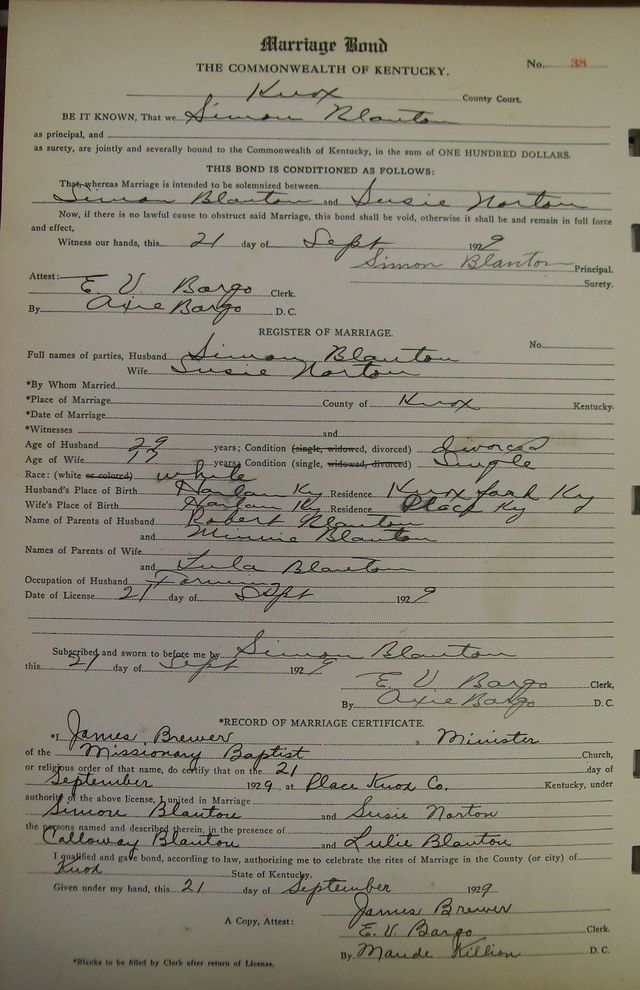 Marriage Bond
THE COMMONWEALTH OF KENTUCKY. No. 38
Knox County Court.
BE IT KNOWN, That we Simon Blanton
as principal, and
as surety, are jointly and severally bound to the Commonwealth of Kentucky, in the sum of ONE HUNDRED DOLLARS.
THIS BOND IS CONDITIONED AS FOLLOWS:
That, whereas Marriage is intended to be solemnized between
Simon Blanton and Susie Norton
Now, if there is no lawful cause to obstruct said Marriage, this bond shall be void, otherwise it shall be and remain in full force
and effect,
Witness our hands, this 21 day of Sept 1929
Simon Blanton Principal.
Surety.
Attest: E. V. Bargo Clerk.
By Axie Bargo D. C.
REGISTER OF MARRIAGE.
No.
Full names of parties, Husband Simon Blanton
Wife Susie Norton
*By Whom Married
*Place of Marriage County of Knox Kentucky.
*Date of Marriage
*Witnesses and
Age of Husband 29 years; Condition (single, widowed, divorced) divorced
Age of Wife years; Condition (single, widowed, divorced) Single
Race: (white or colored) white
Husband's Place of Birth Harlan Ky Residence Knox fork Ky
Wife's Place of Birth Harlan Ky Residence Place Ky
Name of Parents of Husband Robert Blanton
and Minnie Blanton
Names of Parents of Wife
and Lula Blanton
Occupation of Husband Farming
Date of License 21 day of Sept 1929
Subscribed and sworn to before me by Simon Blanton
this 21 day of Sept 1929
E. V. Bargo Clerk,
By Axie Bargo D. C.
*RECORD OF MARRIAGE CERTIFICATE.
*I James Brewer, a Minister
of the Missionary Baptist Church,
or religious order of that name, do certify that on the 21 day of
September 1929, at Place Knox Co. Kentucky, under
authority of the above license, I united in Marriage
Simon Blanton and Susie Norton
the persons named and described therein, in the presence of
Calloway Blanton and Lulie Blanton
I qualified and gave bond, according to law, authorizing me to celebrate the rites of Marriage in the County (or city) of
Knox State of Kentucky.
Given under my hand, this 21 day of September 1929
James Brewer
A Copy, Attest: E. V. Bargo Clerk.
By Maude Killion D. C.
*Blanks to be filled by Clerk after return of License.